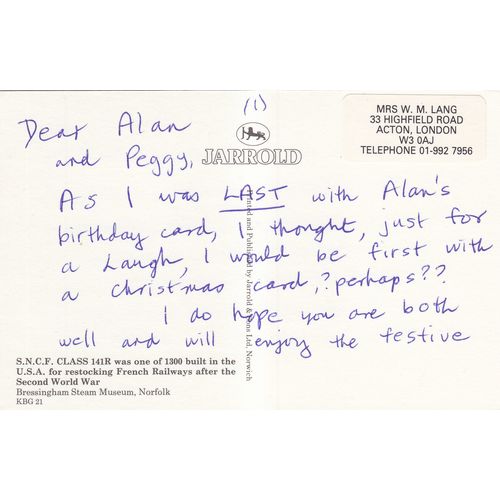 (1)
MRS W. M. LANG
33 HIGHFIELD ROAD
ACTON, LONDON
W3 0AJ
TELEPHONE 01-992 7956
JARROLD
Dear Alan
and Peggy,
As I was LAST with Alan's
birthday card, I thought, just for
a Laugh, I would be first with
a christmas card,? perhaps??
I do hope you are both
well and will enjoy the festive
Printed and Published by Jarrold & Sons Ltd, Norwich
S.N.C.F. CLASS 141R was one of 1300 built in the
U.S.A. for restocking French Railways after the
Second World War
Bressingham Steam Museum, Norfolk
KBG 21